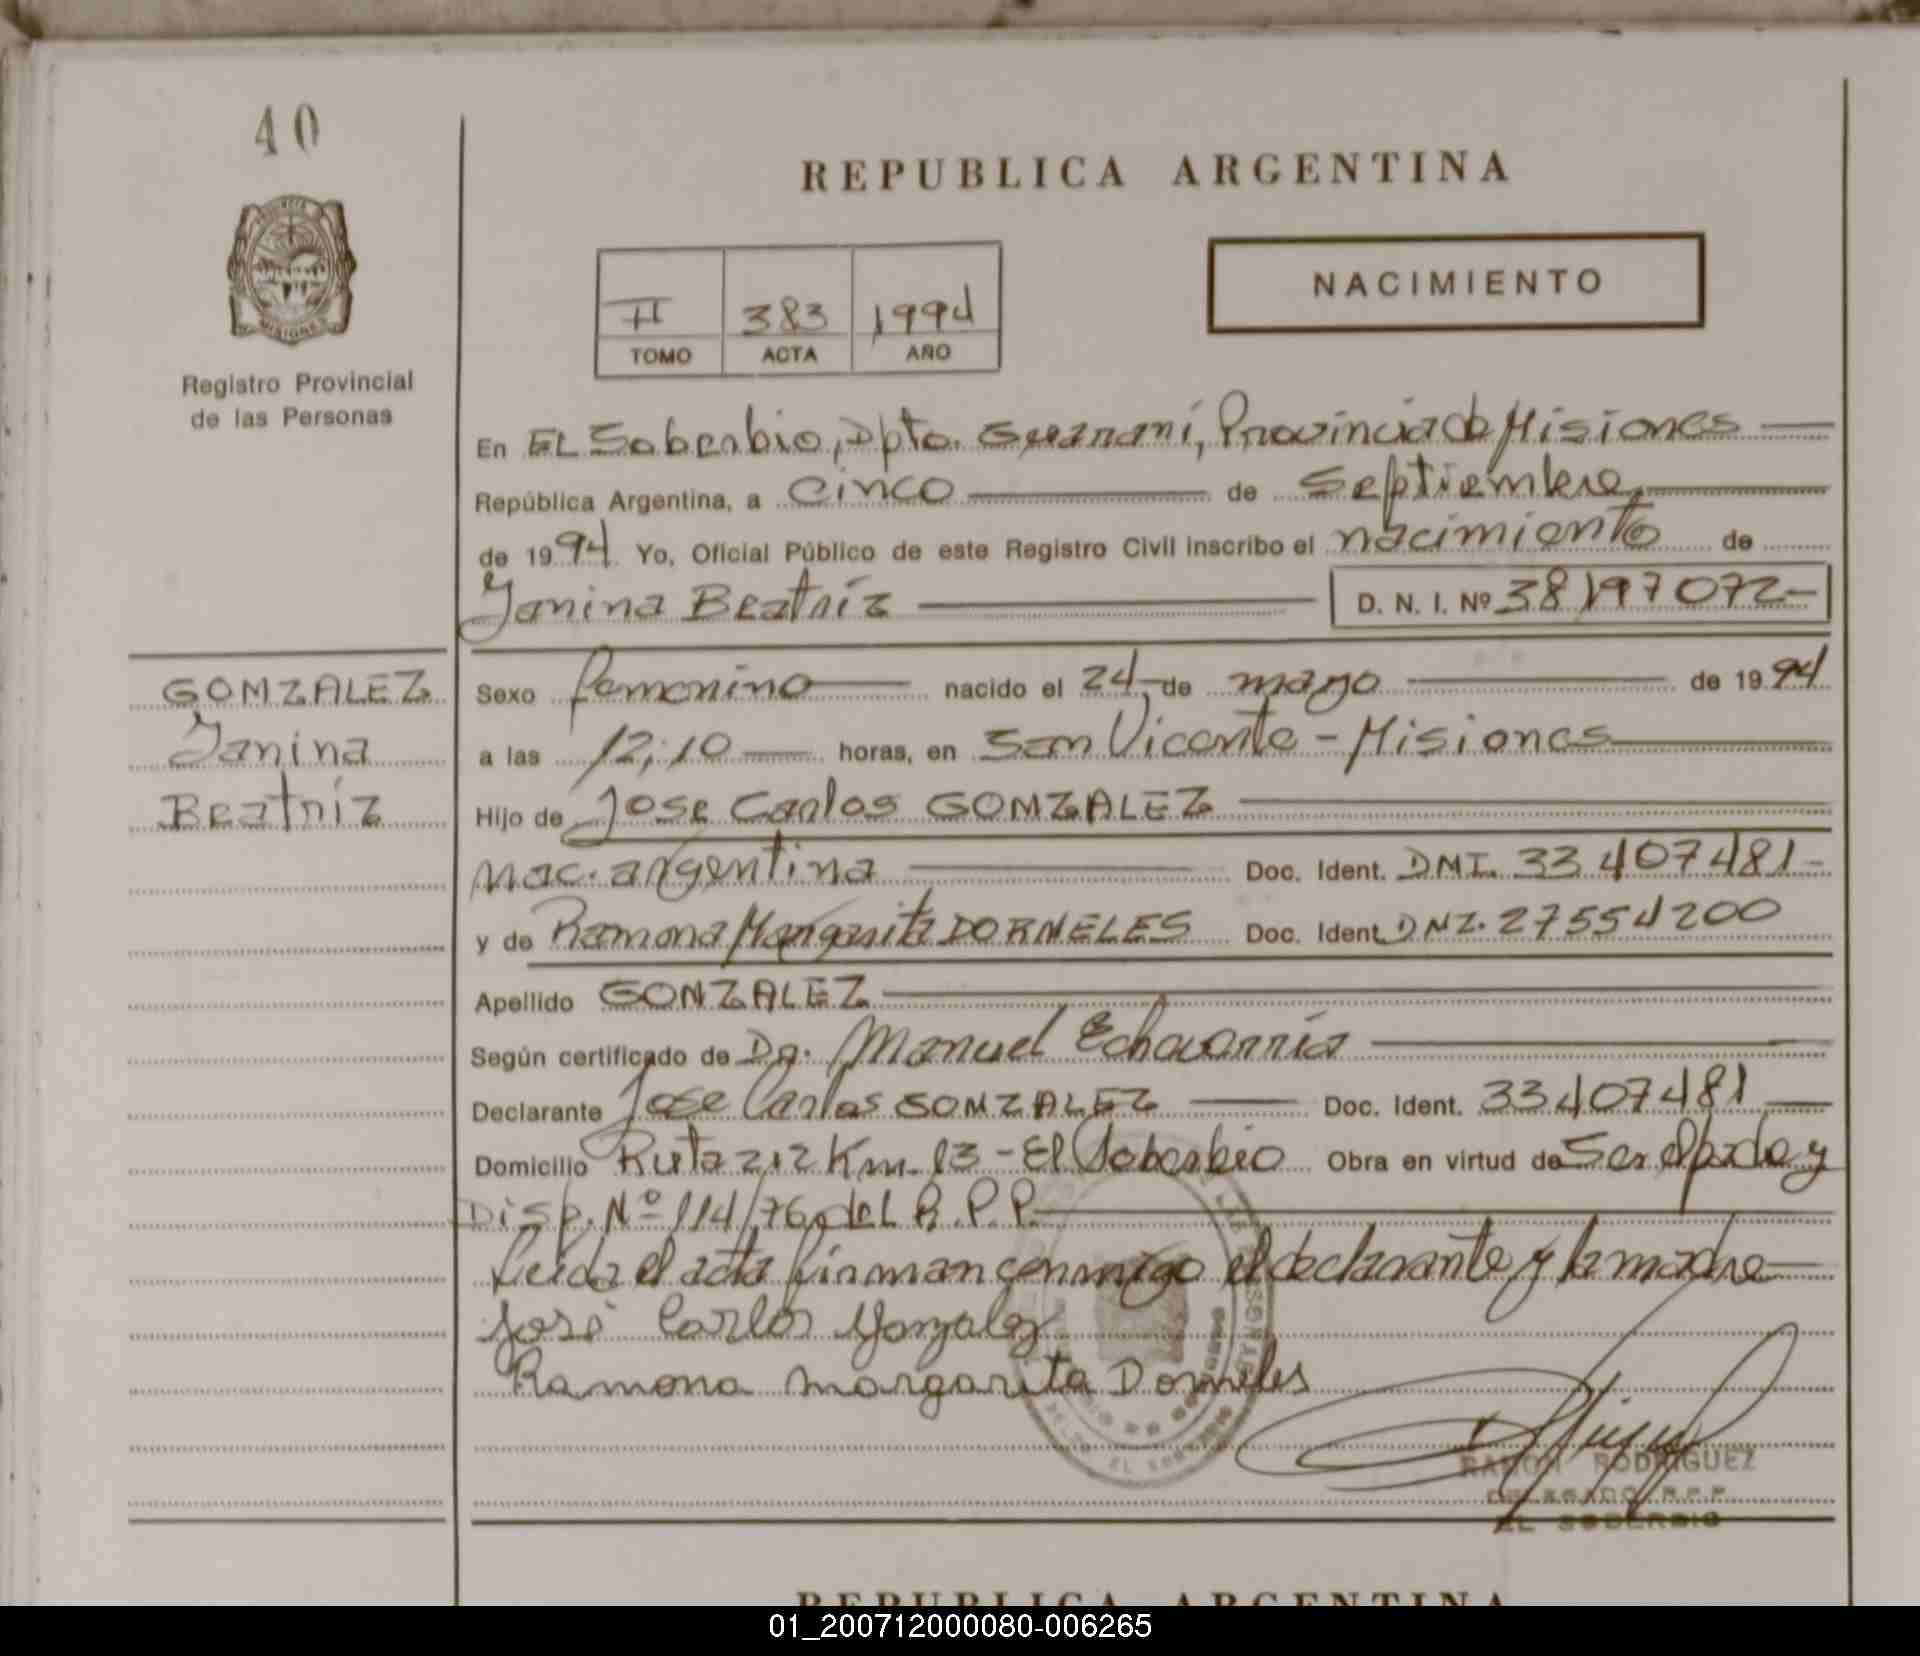 40
REPUBLICA ARGENTINA
NACIMIENTO
II 383 1994
TOMO ACTA AÑO
MISIONES
Registro Provincial
de las Personas
En EL Soberbio, Dpto. Guaraní, Provincia de Misiones
República Argentina, a cinco de septiembre,
de 1994. Yo, Oficial Público de este Registro Civil inscribo el nacimiento de
Janina Beatriz D. N. I. Nº 38197072-
GONZALEZ
Janina
Beatriz
Sexo femenino nacido el 24 de mayo de 1994
a las 12;10 horas, en San Vicente - Misiones
Hijo de Jose Carlos GONZALEZ
nac. argentina Doc. Ident. DNI. 33.407481-
y de Ramona Margarita DORNELES Doc. Ident. DNI. 27554200
Apellido GONZALEZ
Según certificado de Dr. Manuel Echavarria
Declarante Jose Carlos GONZALEZ Doc. Ident. 33.407481
Domicilio Ruta 212 Km. 13 - El Soberbio Obra en virtud de Ser el padre y
Disp. Nº 114/76 del R.P.P.
Leida el acta firman conmigo el declarante y la madre
José Carlos Gonzalez
Ramona Margarita Dorneles
RAMON RODRIGUEZ
DELEGADO R.P.P.
EL SOBERBIO
REPUBLICA ARGENTINA
01_200712000080-006265